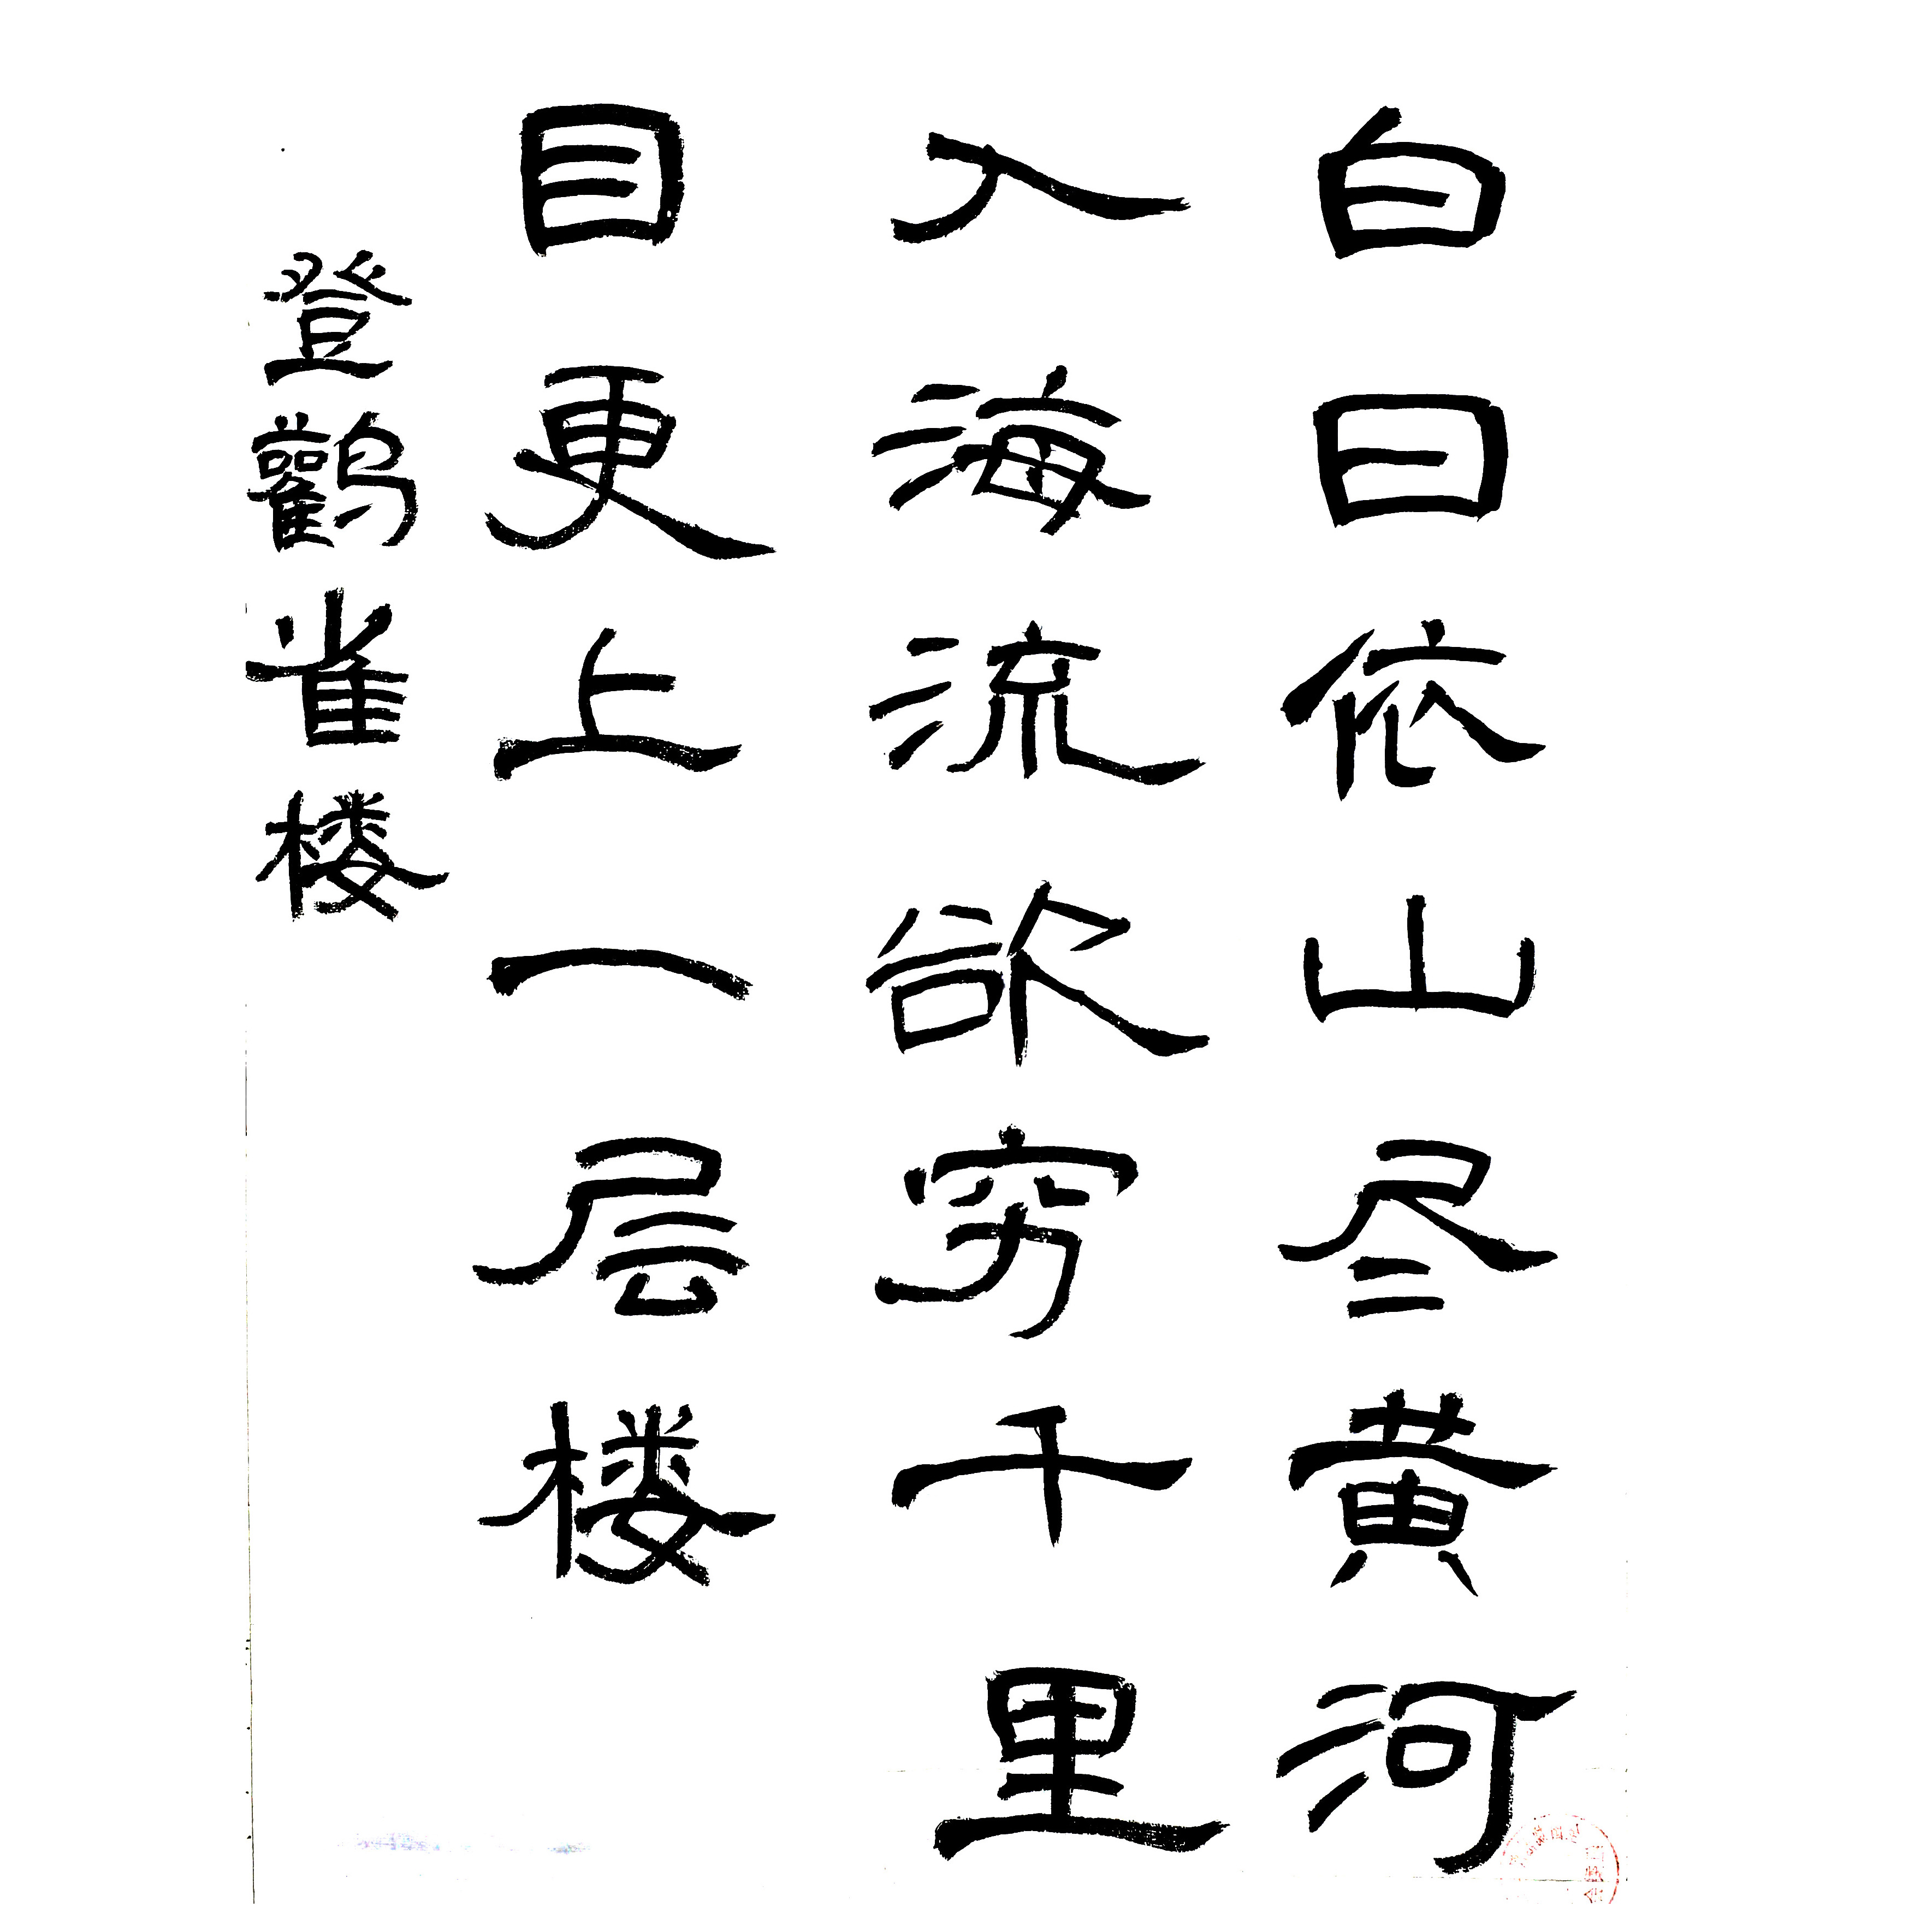 白日依山尽黄河
入海流欲穷千里
目更上一层楼
登鸛雀楼